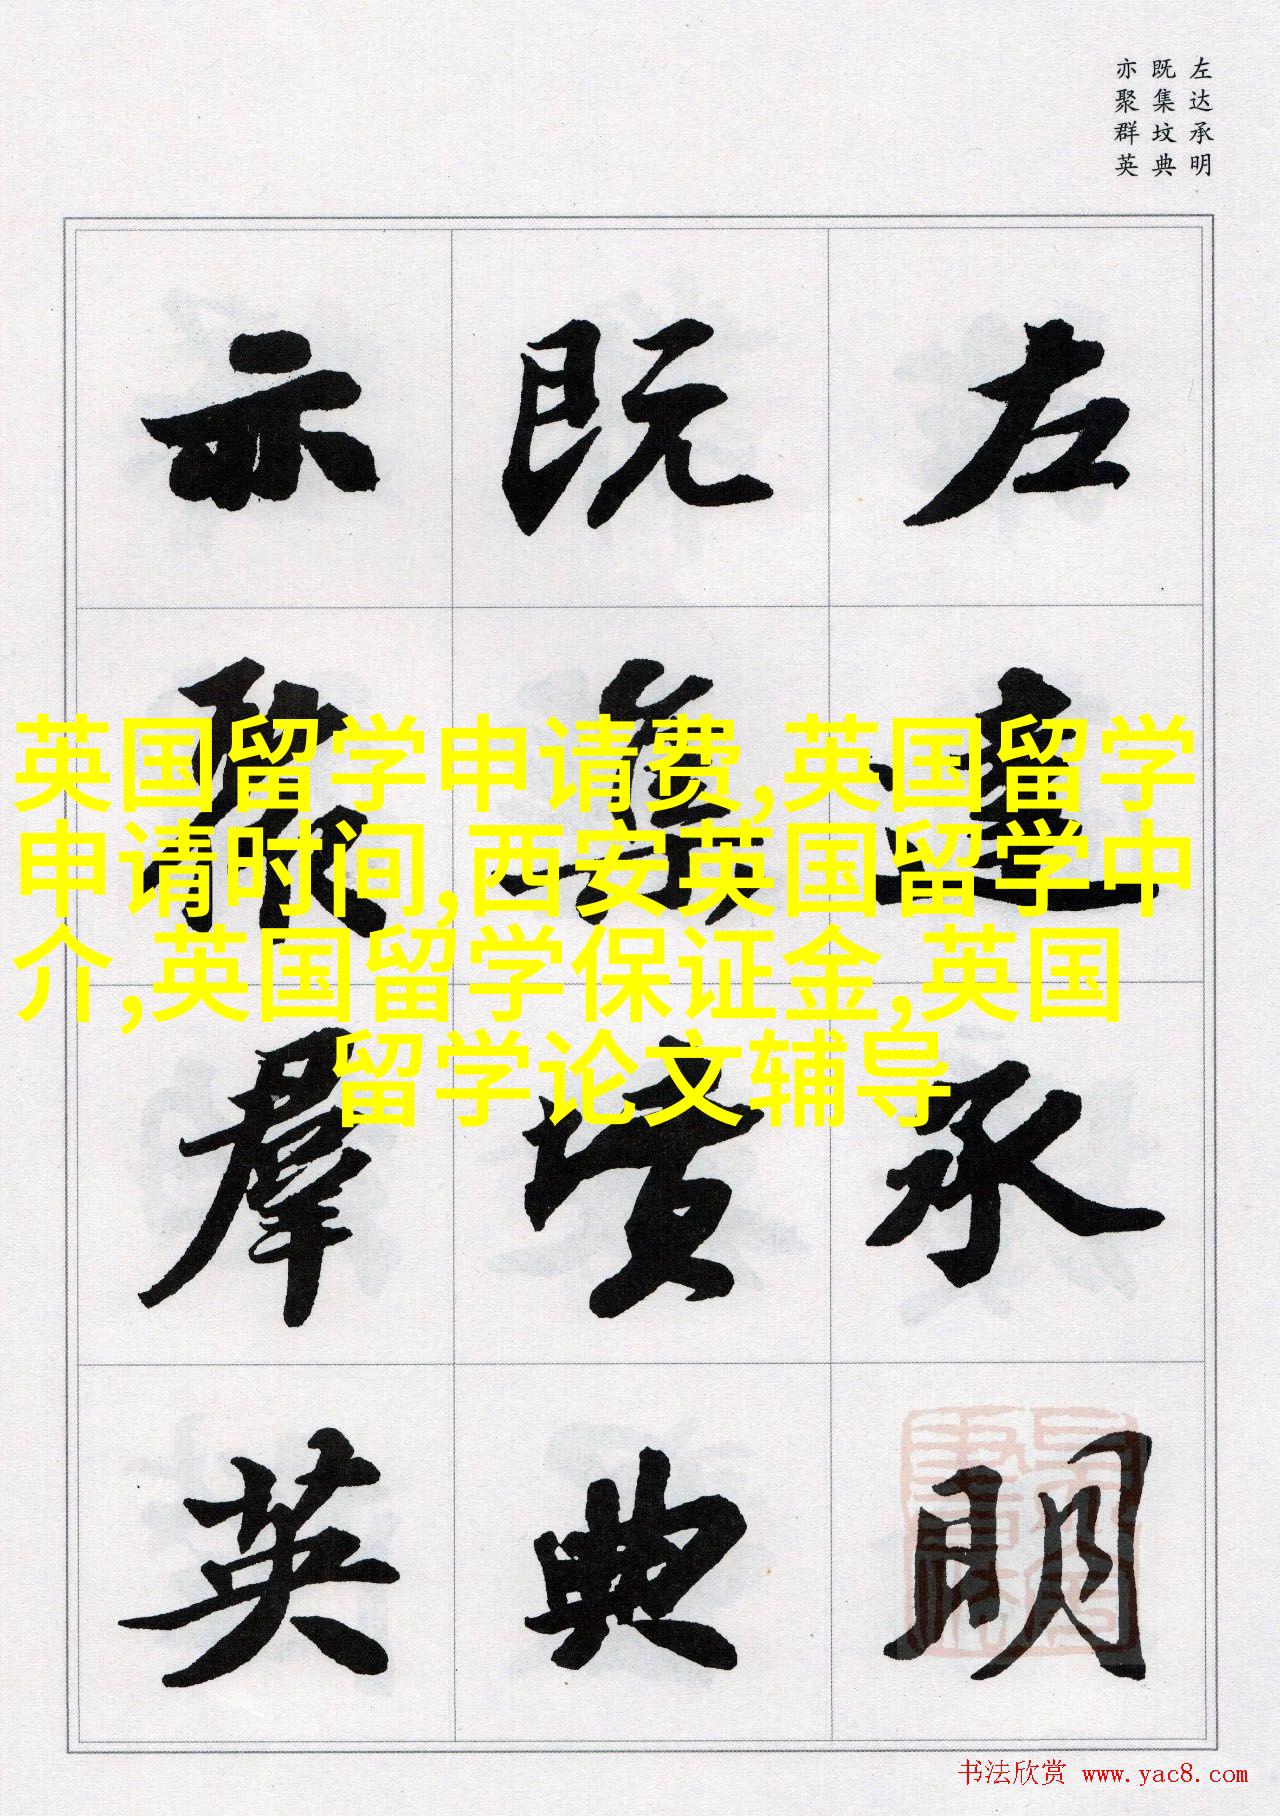 左达承明
既集坟典
亦聚群英
左達承明
既集墳典
亦聚羣英
英国留学申请费,英国留学
申请时间,西安英国留学中
介,英国留学保证金,英国
留学论文辅导
书法欣赏 www.yac8.com